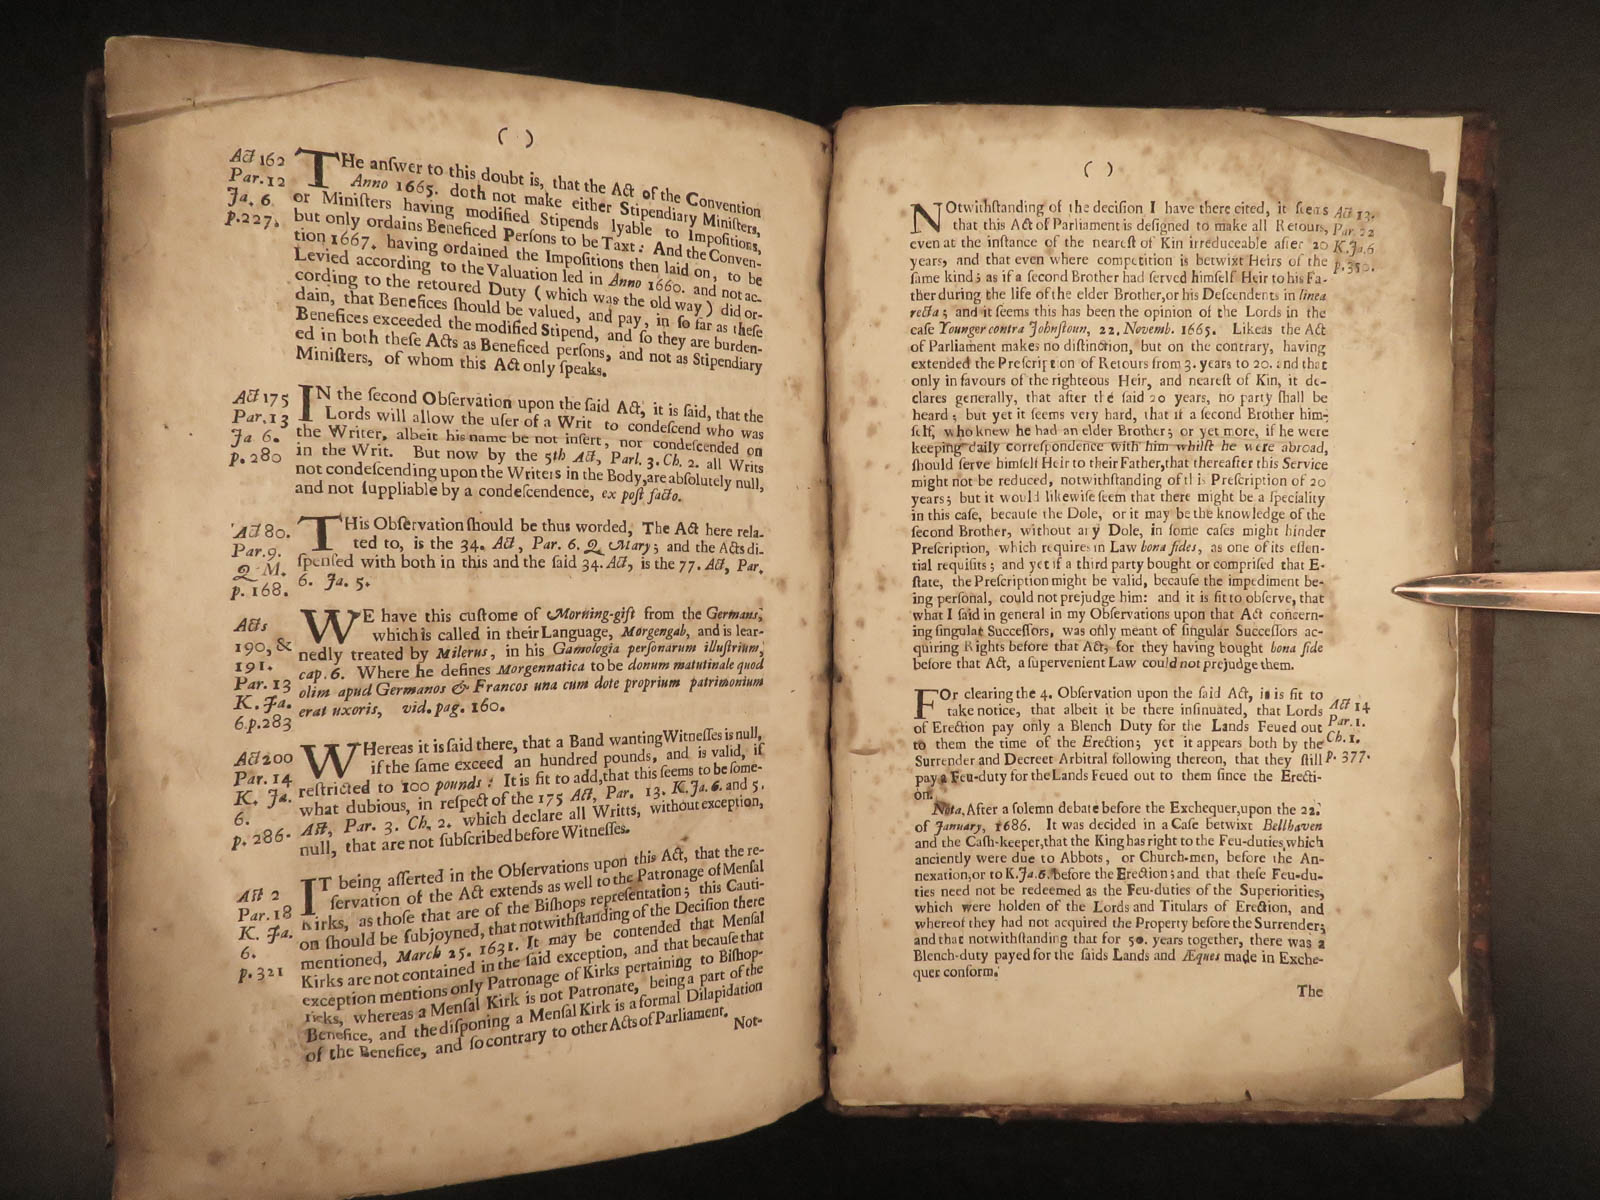 ( )
Act 162
Par. 12
Ja. 6
p. 227.
THe anſwer to this doubt is, that the Act of the Convention
Anno 1665. doth not make either Stipendiary Miniſters,
or Miniſters having modified Stipends lyable to Impoſitions,
but only ordains Beneficed Perſons to be Taxt: And the Conven-
tion 1667. having ordained the Impoſitions then laid on, to be
Levied according to the Valuation led in Anno 1660. and not ac-
cording to the retoured Duty (which was the old way) did or-
dain, that Benefices ſhould be valued, and pay, in ſo far as theſe
Benefices exceeded the modified Stipend, and ſo they are burden-
ed in both theſe Acts as Beneficed perſons, and not as Stipendiary
Miniſters, of whom this Act only ſpeaks.
Act 175
Par. 13
Ja 6.
p. 280
IN the ſecond Obſervation upon the ſaid Act, it is ſaid, that the
Lords will allow the uſer of a Writ to condeſcend who was
the Writer, albeit his name be not inſert, nor condeſcended on
in the Writ. But now by the 5th Act, Parl. 3. Ch. 2. all Writs
not condeſcending upon the Writers in the Body, are abſolutely null,
and not ſuppliable by a condeſcendence, ex poſt facto.
Act 80.
Par. 9.
Q. M.
p. 168.
THis Obſervation ſhould be thus worded, The Act here rela-
ted to, is the 34. Act, Par. 6. Q. Mary; and the Acts di-
ſpenſed with both in this and the ſaid 34. Act, is the 77. Act, Par.
6. Ja. 5.
Acts
190, &
191.
Par. 13
K. Ja.
6. p. 283
WE have this cuſtome of Morning-gift from the Germans,
which is called in their Language, Morgengab, and is lear-
nedly treated by Milerus, in his Gamologia perſonarum illuſtrium,
cap. 6. Where he defines Morgennatica to be donum matutinale quod
olim apud Germanos & Francos una cum dote proprium patrimonium
erat uxoris, vid. pag. 160.
Act 200
Par. 14
K. Ja.
6.
p. 286.
WHereas it is ſaid there, that a Band wanting Witneſſes is null,
if the ſame exceed an hundred pounds, and is valid, if
reſtricted to 100 pounds: It is fit to add, that this ſeems to be ſome-
what dubious, in reſpect of the 175 Act, Par. 13. K. Ja. 6. and 5.
Act, Par. 3. Ch. 2. which declare all Writts, without exception,
null, that are not ſubſcribed before Witneſſes.
Act 2
Par. 18
K. Ja.
6.
p. 321
IT being aſſerted in the Obſervations upon this Act, that the re-
ſervation of the Act extends as well to the Patronage of Menſal
Kirks, as thoſe that are of the Biſhops repreſentation; this Cauti-
on ſhould be ſubjoyned, that notwithſtanding of the Deciſion there
mentioned, March 25. 1631. It may be contended that Menſal
Kirks are not contained in the ſaid exception, and that becauſe that
exception mentions only Patronage of Kirks pertaining to Biſhop-
ricks, whereas a Menſal Kirk is not Patronate, being a part of the
Benefice, and the diſponing a Menſal Kirk is a formal Dilapidation
of the Benefice, and ſo contrary to other Acts of Parliament.
Not-
( )
NOtwithſtanding of the deciſion I have there cited, it ſeems
that this Act of Parliament is deſigned to make all Retours,
even at the inſtance of the neareſt of Kin irreduceable after 20
years, and that even where competition is betwixt Heirs of the
ſame kind; as if a ſecond Brother had ſerved himſelf Heir to his Fa-
ther during the life of the elder Brother, or his Deſcendents in linea
recta; and it ſeems this has been the opinion of the Lords in the
caſe Younger contra Johnſtoun, 22. Novemb. 1665. Likeas the Act
of Parliament makes no diſtinction, but on the contrary, having
extended the Preſcription of Retours from 3. years to 20. and that
only in favours of the righteous Heir, and neareſt of Kin, it de-
clares generally, that after the ſaid 20 years, no party ſhall be
heard; but yet it ſeems very hard, that if a ſecond Brother him-
ſelf, who knew he had an elder Brother; or yet more, if he were
keeping daily correſpondence with him whilſt he were abroad,
ſhould ſerve himſelf Heir to their Father, that thereafter this Service
might not be reduced, notwithſtanding of this Preſcription of 20
years; but it would likewiſe ſeem that there might be a ſpeciality
in this caſe, becauſe the Dole, or it may be the knowledge of the
ſecond Brother, without any Dole, in ſome caſes might hinder
Preſcription, which requires in Law bona fides, as one of its eſſen-
tial requiſits; and yet if a third party bought or compriſed that E-
ſtate, the Preſcription might be valid, becauſe the impediment be-
ing perſonal, could not prejudge him: and it is fit to obſerve, that
what I ſaid in general in my Obſervations upon that Act concern-
ing ſingular Succeſſors, was only meant of ſingular Succeſſors ac-
quiring Rights before that Act, for they having bought bona fide
before that Act, a ſupervenient Law could not prejudge them.
Act 13.
Par. 22
K. Ja. 6
p. 350.
FOr clearing the 4. Obſervation upon the ſaid Act, it is fit to
take notice, that albeit it be there inſinuated, that Lords
of Erection pay only a Blench Duty for the Lands Feued out
to them the time of the Erection; yet it appears both by the
Surrender and Decreet Arbitral following thereon, that they ſtill
pay a Feu-duty for the Lands Feued out to them ſince the Erecti-
on.
Act 14
Par. 1.
Ch. 1.
p. 377.
Nota, After a ſolemn debate before the Exchequer, upon the 22.
of January, 1686. It was decided in a Caſe betwixt Bellhaven
and the Caſh-keeper, that the King has right to the Feu-duties, which
anciently were due to Abbots, or Church-men, before the An-
nexation, or to K. Ja. 6. before the Erection; and that theſe Feu-du-
ties need not be redeemed as the Feu-duties of the Superiorities,
which were holden of the Lords and Titulars of Erection, and
whereof they had not acquired the Property before the Surrender;
and that notwithſtanding that for 50. years together, there was a
Blench-duty payed for the ſaids Lands and Æques made in Exche-
quer conform.
The